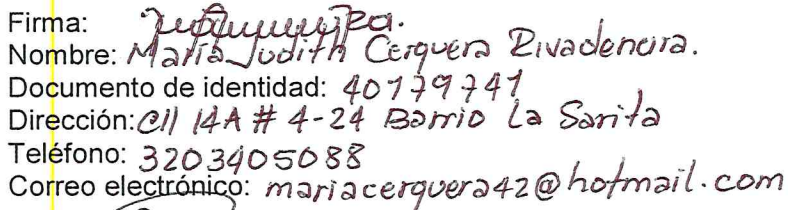 Firma:
Nombre: María Judith Cerquera Rivadeneira.
Documento de identidad: 40179741
Dirección: Cll 14A # 4-24 Barrio La Sarita
Teléfono: 3203405088
Correo electrónico: mariacerquera42@hotmail.com